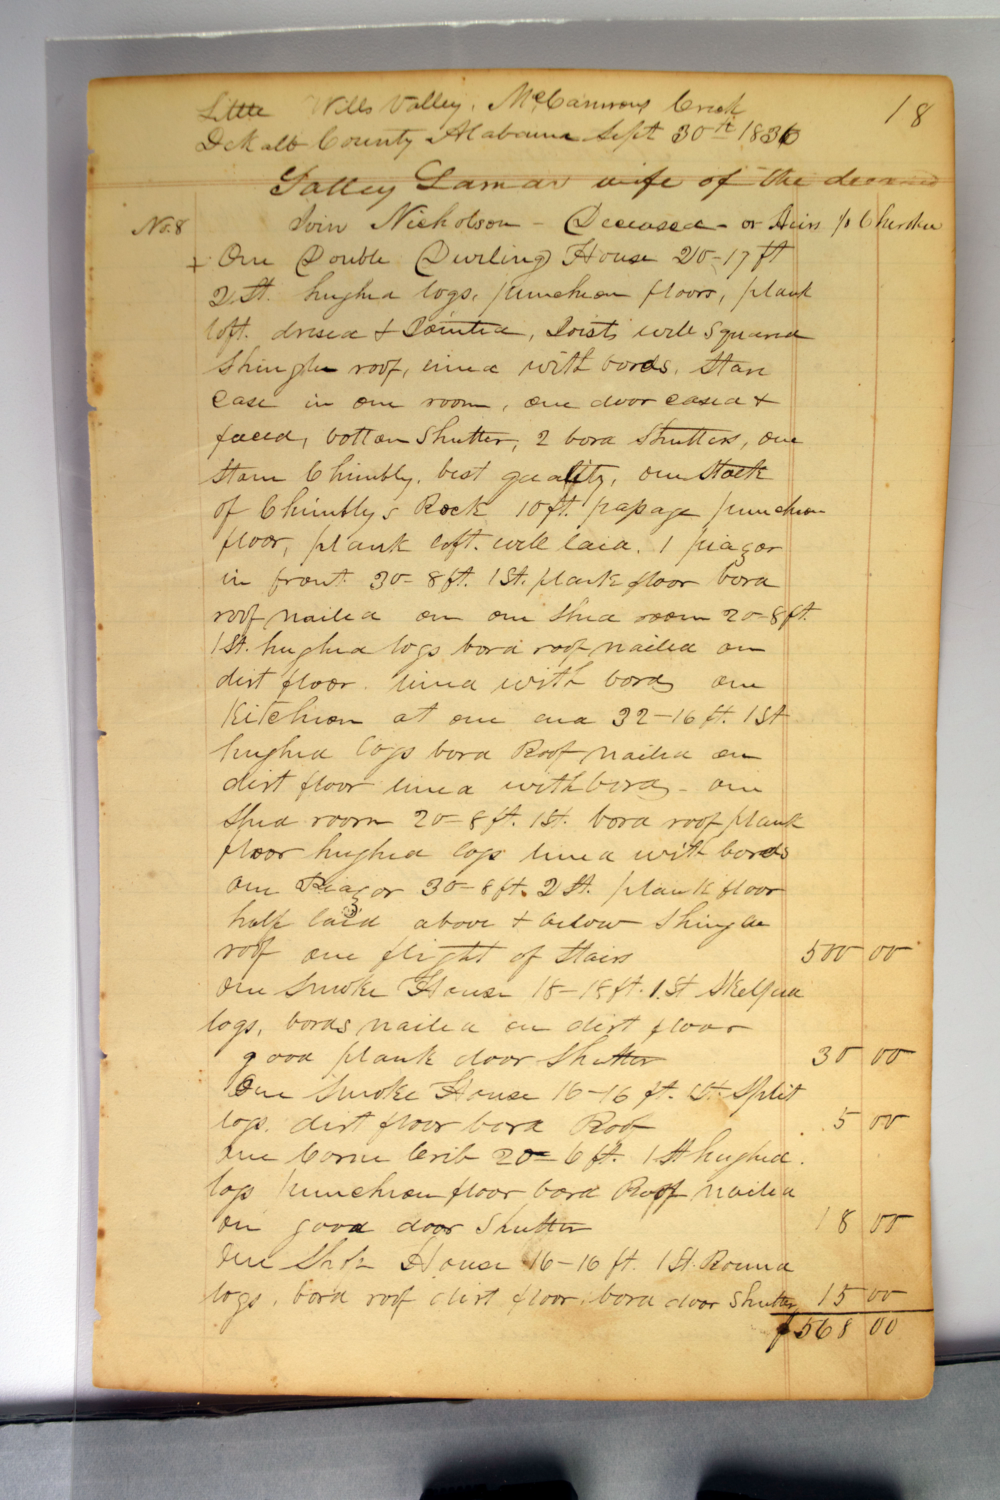 18
Little Wills Valley, McCamrons Creek
DeKalb County Alabama Sept 30th 1836
Salley Lamar wife of the deceased
No. 8 Join Nicholson - Deceased - or Heirs
+ One Double Dwelling House 20-17 ft
2 St. hughed logs, puncheon floors, plank
loft. dresed & Jointed, Joists well squared
Shingle roof, lined with bords. Stare
Case in one room, one door cased &
faced, botton Shutter, 2 bord Shutters, one
Stone Chimbly. best quality, one Stack
of Chimblys Rock 10 ft. pasage puncheon
floor, plank loft. well laid. 1 piazor
in front 30-8 ft. 1 St. plank floor bord
roof nailed on one Shed room 20-8 ft.
1 St. hughed logs bord roof nailed on
dirt floor. lined with bords one
Kitchion at one end 32-16 ft. 1 St
hughed logs bord Roof nailed on
dirt floor lined with bords - one
Shed room 20-8 ft. 1 St. bord roof plank
floor hughed logs lined with bords
one Piazor 30-8 ft. 2 St. plank floor
half laid above & below Shingle
roof one flight of Stairs 500 00
One Smoke House 18-18 ft. 1 St Skelped
logs, bords nailed on dirt floor
good plank door Shutter 30 00
One Smoke House 16-16 ft. 1 St. Split
logs. dirt floor bord Roof 5 00
One Corne Crib 20-6 ft. 1 St hughed.
logs puncheon floor bord Roof nailed
on good door Shutter 18 00
One House 16-16 ft. 1 St. Round
logs, bord roof dirt floor, bord door Shutter 15 00
$568 00